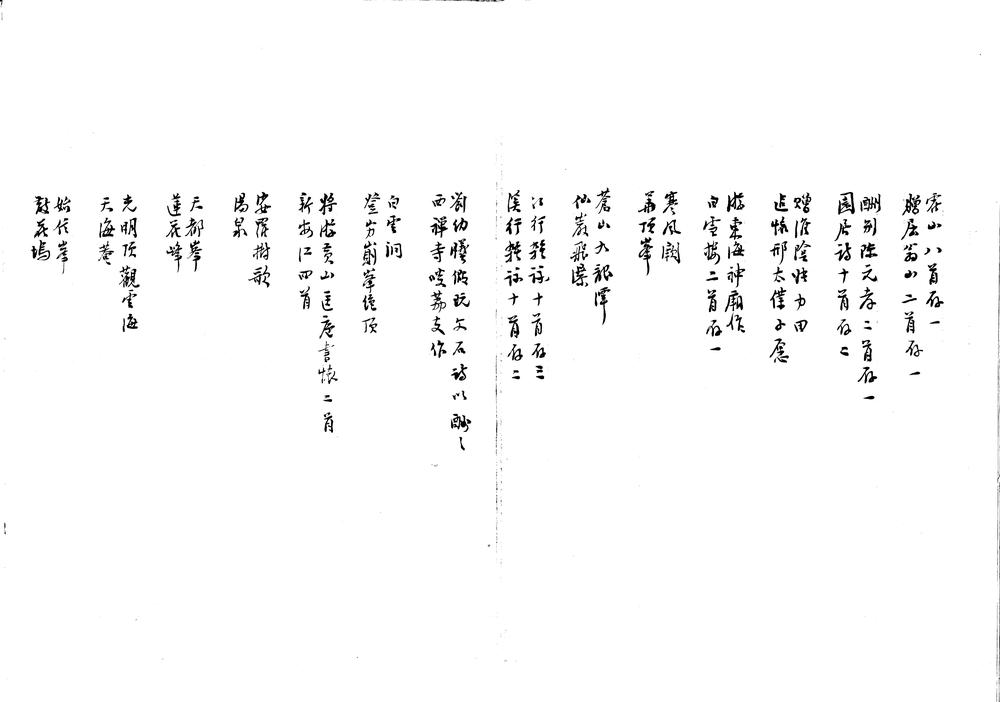 霍山八首存一
贈屈翁山二首存一
酬別陳元孝二首存一
園居詩十首存二
贈淮陰張力田
追懷邢太僕子愿
游東海神廟作
白雲樓二首存一
寒風闕
華頂峯
蒼山九龍潭
仙巖飛梁
江行雜詠十首存三
溪行雜詠十首存二
劉幼曦餉玩文石詩以酬之
西禪寺啖荔支作
白雲洞
登屴崱峯絕頂
將游黃山匡廬書懷二首
新安江四首
娑羅樹歌
湯泉
天都峯
蓮花峰
光明頂觀雲海
天海菴
始信峯
散花塢